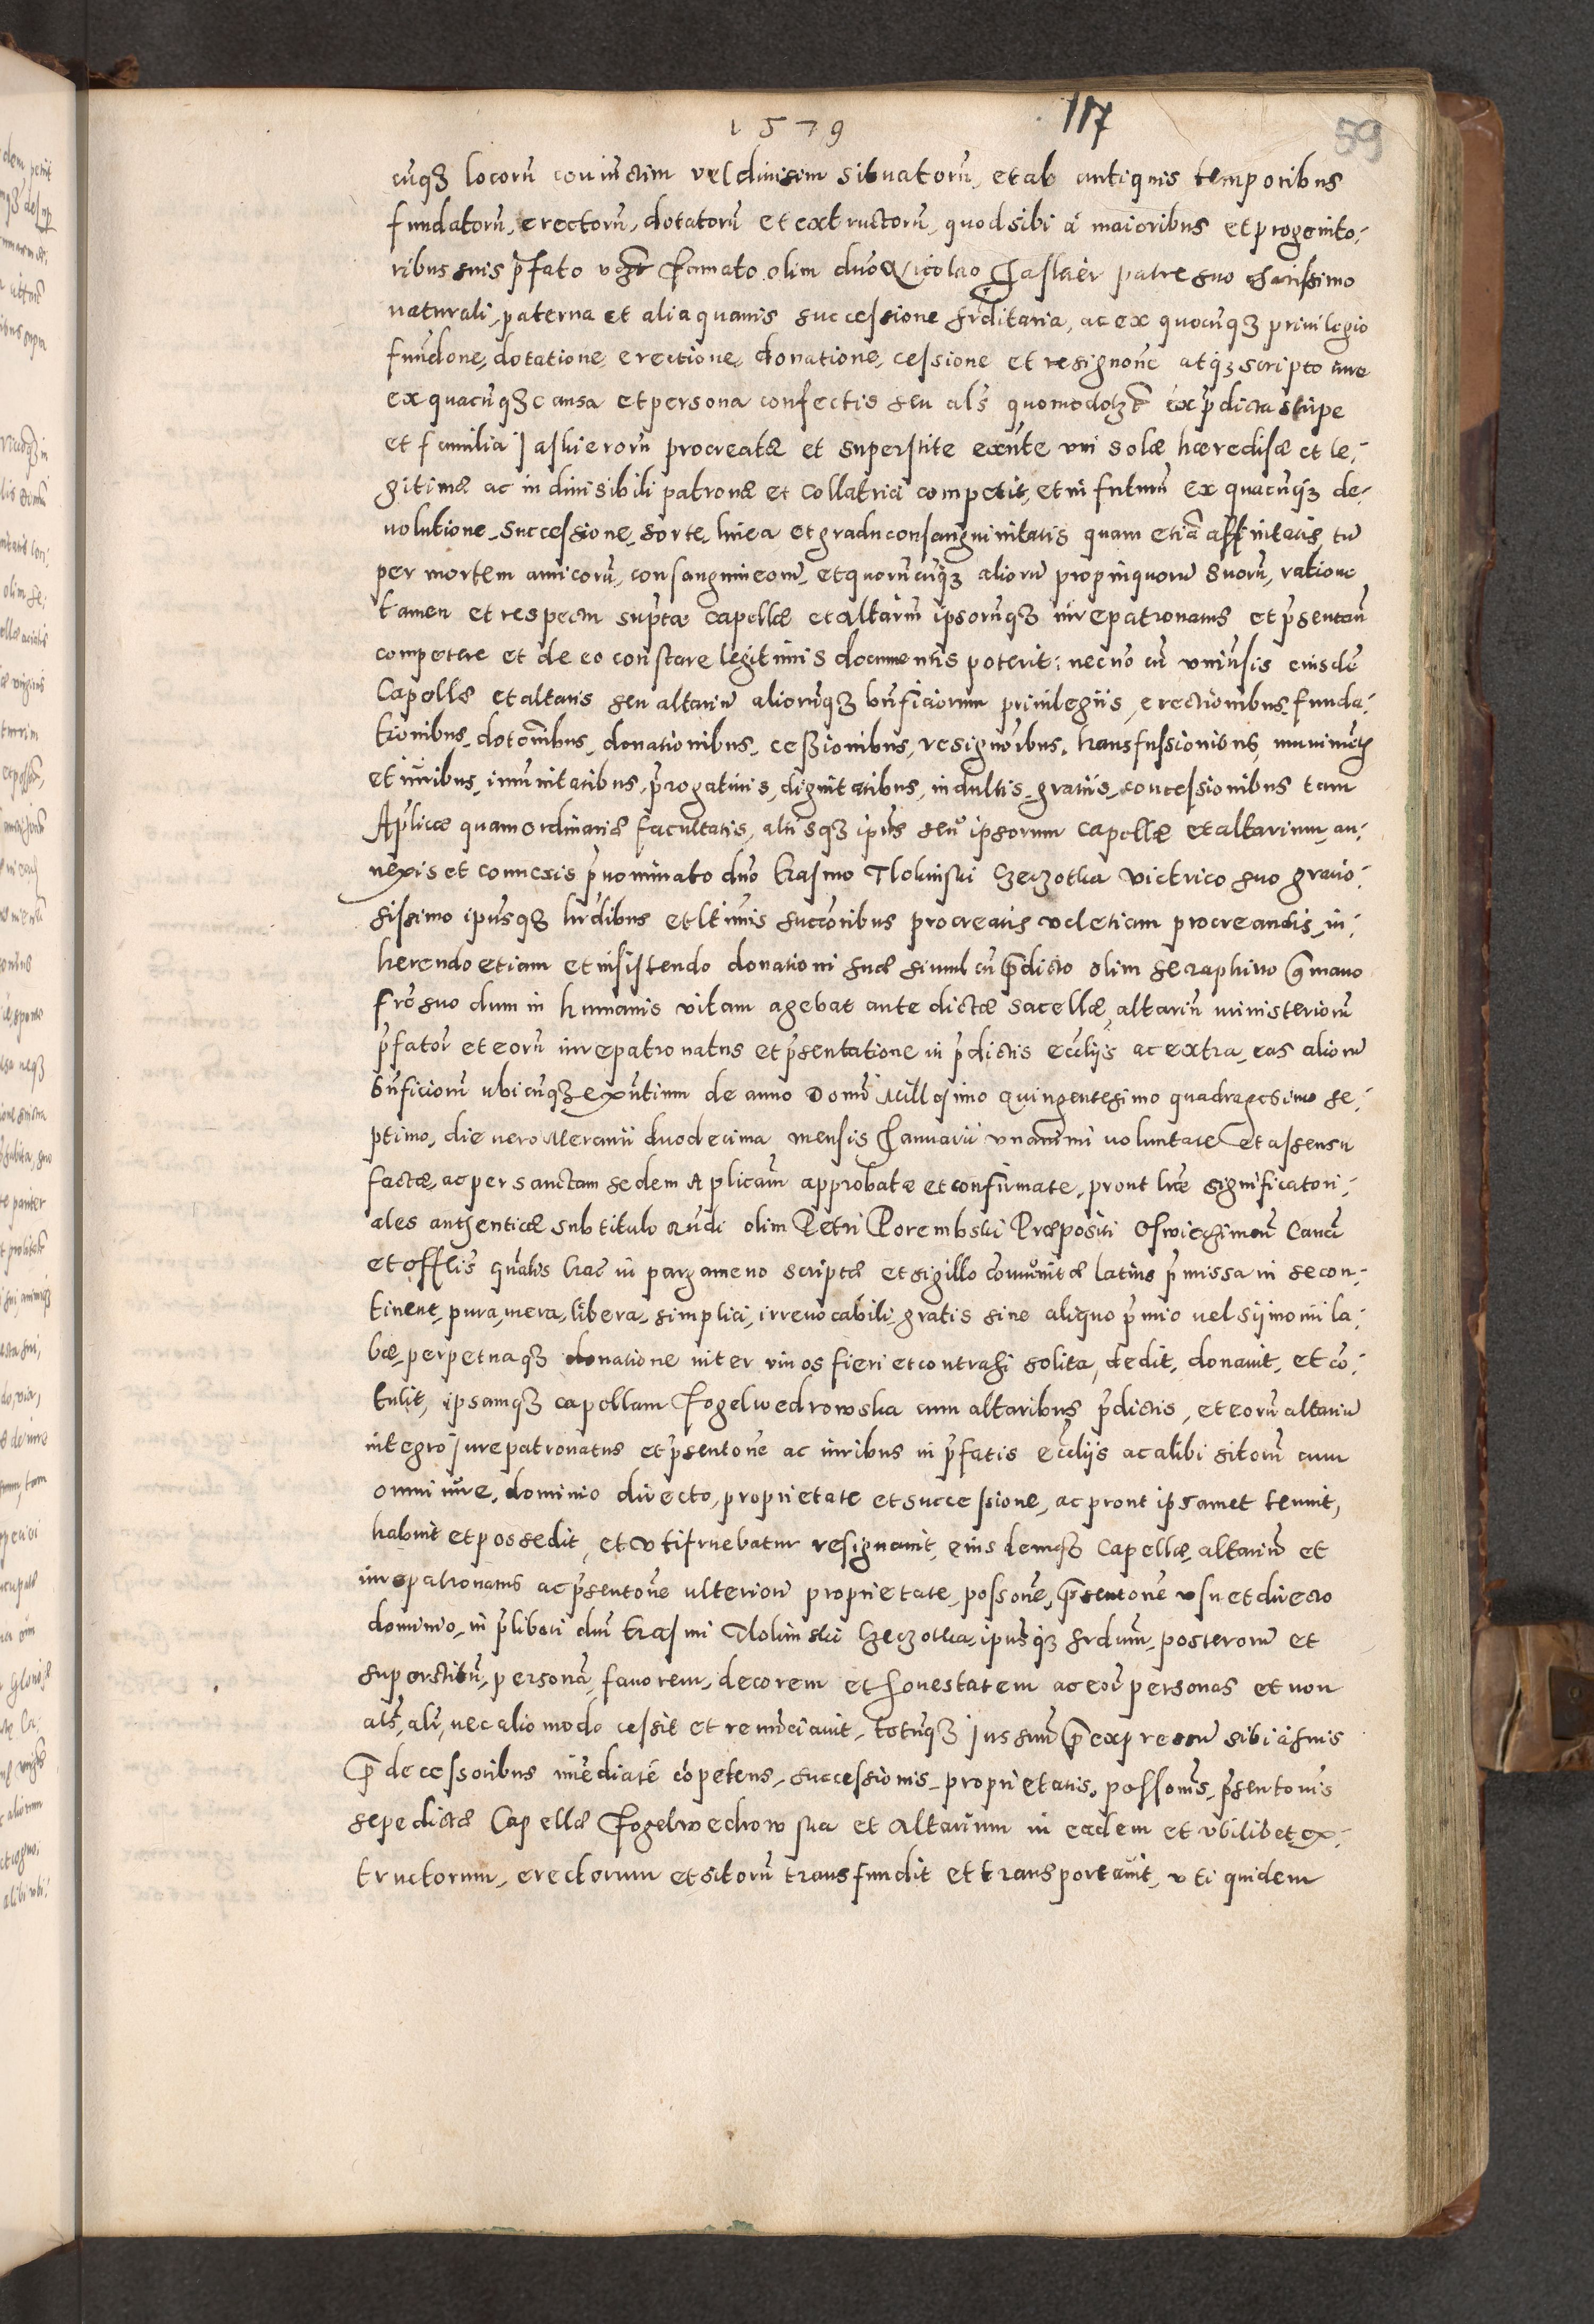 1579
117
59
cuqȝ locorū coniunctim vel diuisim situatorū, et ab antiquis temporibus
fundatorū, erectorū, dotatorū et extructorū, quod sibi á maioribus et progenito-
ribus suis p̄fato olim dn̄o Nicolao Jaskier patre suo charissimo
naturali, paterna et alia quauis successione hr̄ditaria, ac ex quocūqȝ priuilegio
fundōne, dotatione, erectione, donatione, cessione et resignōne atqȝ scripto siue
ex quacūqȝ causa et persona confectis seu als̄ ex p̄dicta stirpe
et familia Jaskierorū procreatæ et superstite exn̄te vni solæ hæredisæ et le-
gitimæ ac indiuisibili patronæ et collatrici competit, et in futurū ex quacūqȝ de-
uolutione, successione, sorte, linea et gradu consanguinitatis quam etiā affinitatis, tū
per mortem amicorū, consanguineorū, et quorūcūqȝ aliorū propinquorū suorū, ratione
tamen et respectu sup̄tæ capellæ et altariū ipsorūqȝ iurepatronatus et p̄sentan̄
competere et de eo constare legitimis documentis poterit: necnō cū vniuersis eiusdē
Capellæ et altaris seu altariū aliorūqȝ bn̄ficiorum priuilegiis, erectionibus, funda-
tionibus, dotōnibus, donationibus, cessionibus, resignōnibus, transfussionibus, munimētȝ
et iuribus, imunitatibus, p̄rogatiuis, dignitatibus, indultis, gratiis, concessionibus tam
Aplicæ quam ordinariæ facultatis, aliisqȝ ipsius seu ipsorum capellæ et altarium, an-
nexis et connexis p̄nominato dn̄o Erasmo Tlokinski Czeczotka victrico suo gratio-
sissimo ipsiusqȝ hr̄dibus et ltimis succōribus procreatis vel etiam procreandis, in-
herendo etiam et insistendo donationi suæ simul cū p̄dicto olim Seraphino Germano
frē suo dum in humanis vitam agebat ante dictæ sacellæ, altariū ministeriorū
p̄fator et eorū iurepatronatus et p̄sentatione in p̄dictis eccliis ac extra eas aliorū
bn̄ficiorū vbicūqȝ exn̄tium de anno Domī Millesimo Quingentesimo quadragesimo se-
ptimo, die vero Mercurii duodecima mensis Januarii vnanimi voluntate et assensu
factæ, ac per sanctam sedem Aplicam̄ approbatæ et confirmate, prout lrē significatori-
ales authenticæ sub titulo Rn̄di olim Petri Porembski Præpositi Oswieczimen̄ Canci
et offlis gn̄alis Crac̄ in pargameno scriptæ et sigillo cōmunitæ latius p̄missa in se con-
tinent, pura, mera, libera, simplici, irreuocabili, gratis sine aliquo p̄mio vel simonii la-
bæ, perpetuaqȝ donatione inter viuos fieri et contrahi solita, dedit, donauit, et cō-
tulit, ipsamqȝ capellam Fogelwedrowska cum altaribus p̄dictis, et eorū altariū
integro Jurepatronatus et p̄sentōne ac iuribus in p̄fatis eccliis ac alibi sitorū cum
omni iure, dominio directo, proprietate et successione, ac prout ipsamet tenuit,
habuit et possedit, et vtifruebatur resignauit, eiusdemqȝ Capellæ, altariū et
iurepatronatus ac p̄sentōne vlteriori proprietate, possōne, p̄sentōne vsu et directo
dominio, in p̄libati dn̄i Erasmi Tlokinski Czeczotka, ipsiusqȝ hr̄dum, posterorū et
superstitū, personā, fauorem, decorem et honestatem ac eorū personas et non
als̄, ali, nec alio modo cessit et renūciauit, totūqȝ Jus suū p̄expressū sibi á suis
p̄decessoribus im̄ediatē cōpetens, successionis, proprietatis, possōnis, p̄sentōnis
sepedictæ Capellæ Fogelwedrowska et Altarium in eadem et vbilibet ex-
tructorum, erectorum et sitorū transfundit et transportauit, vti quidem